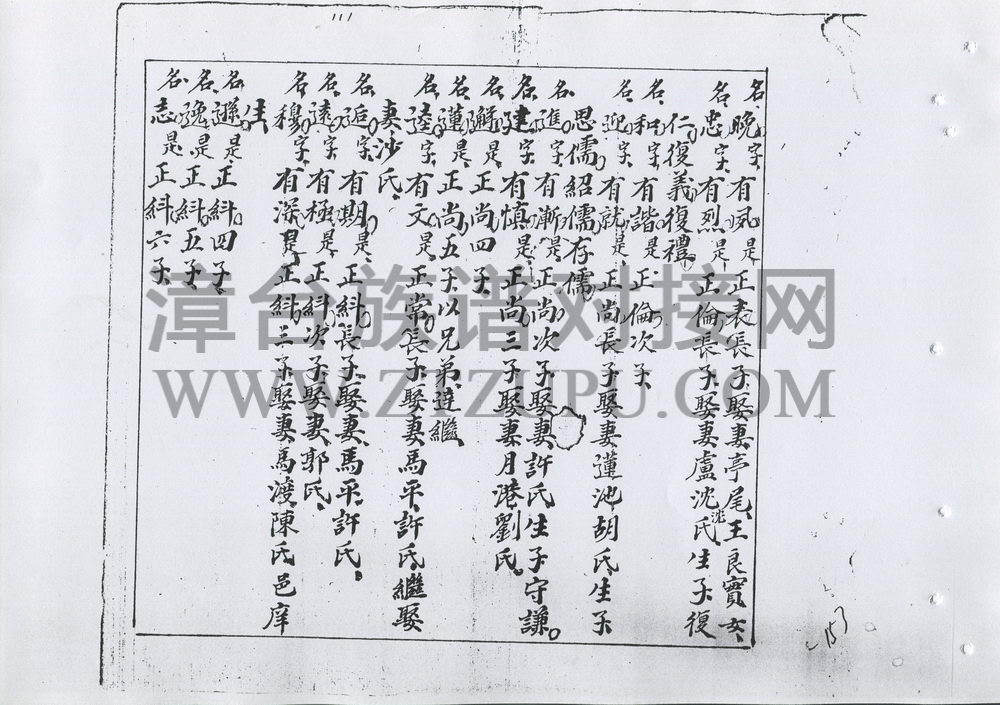 名晚字有夙是正表長子娶妻亭尾王良寶女
名忠字有烈是正倫長子娶妻盧沈氏生子復
仁復義復禮
名和字有諧是正倫次子
名迎字有就是正尚長子娶妻蓮池胡氏生子
思儒紹儒存儒
名進字有漸是正尚次子娶妻許氏生子守謙
名建字有慎是正尚三子娶妻月港劉氏
名避是正尚四子
名蓮是正尚五子以兄弟逵繼
名逵字有文是正常長子娶妻馬平許氏繼娶
妻沙氏
名逅字有期是正糾長子娶妻馬平許氏
名遠字有極是正糾次子娶妻郭氏
名穆字有深是正糾三子娶妻馬渡陳氏邑庠
生
名遜是正糾四子
名逸是正糾五子
名志是正糾六子
漳台族谱对接网
WWW.ZTZUPU.COM
153